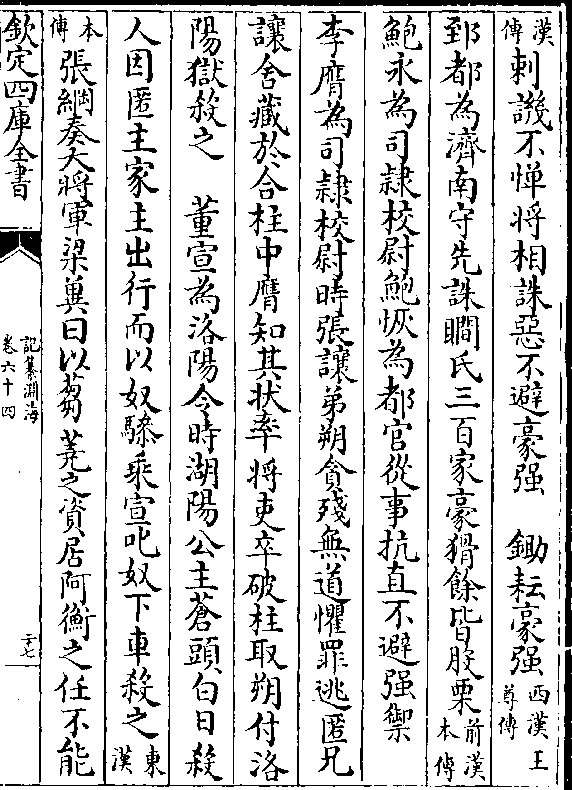 漢傳刺譏不憚將相誅惡不避豪强　鋤耘豪强西漢王尊傳
郅都為濟南守先誅瞷氏三百家豪猾餘皆股栗前漢本傳
鮑永為司隷校尉鮑恢為都官從事抗直不避强禦
李膺為司隷校尉時張讓弟朔貪殘無道懼罪逃匿兄
讓舍藏於合柱中膺知其狀率將吏卒破柱取朔付洛
陽獄殺之　董宣為洛陽令時湖陽公主蒼頭白日殺
人因匿主家主出行而以奴驂乘宣叱奴下車殺之東漢
本傳張綱奏大將軍梁冀曰以芻蕘之資居阿衡之任不能
欽定四庫全書
記纂淵海
卷六十四
二十七